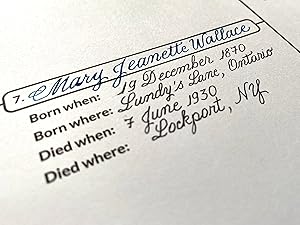 7. Mary Jeanette Wallace
Born when: 19 December 1870
Born where: Lundy's Lane, Ontario
Died when: 7 June 1930
Died where: Lockport, NY